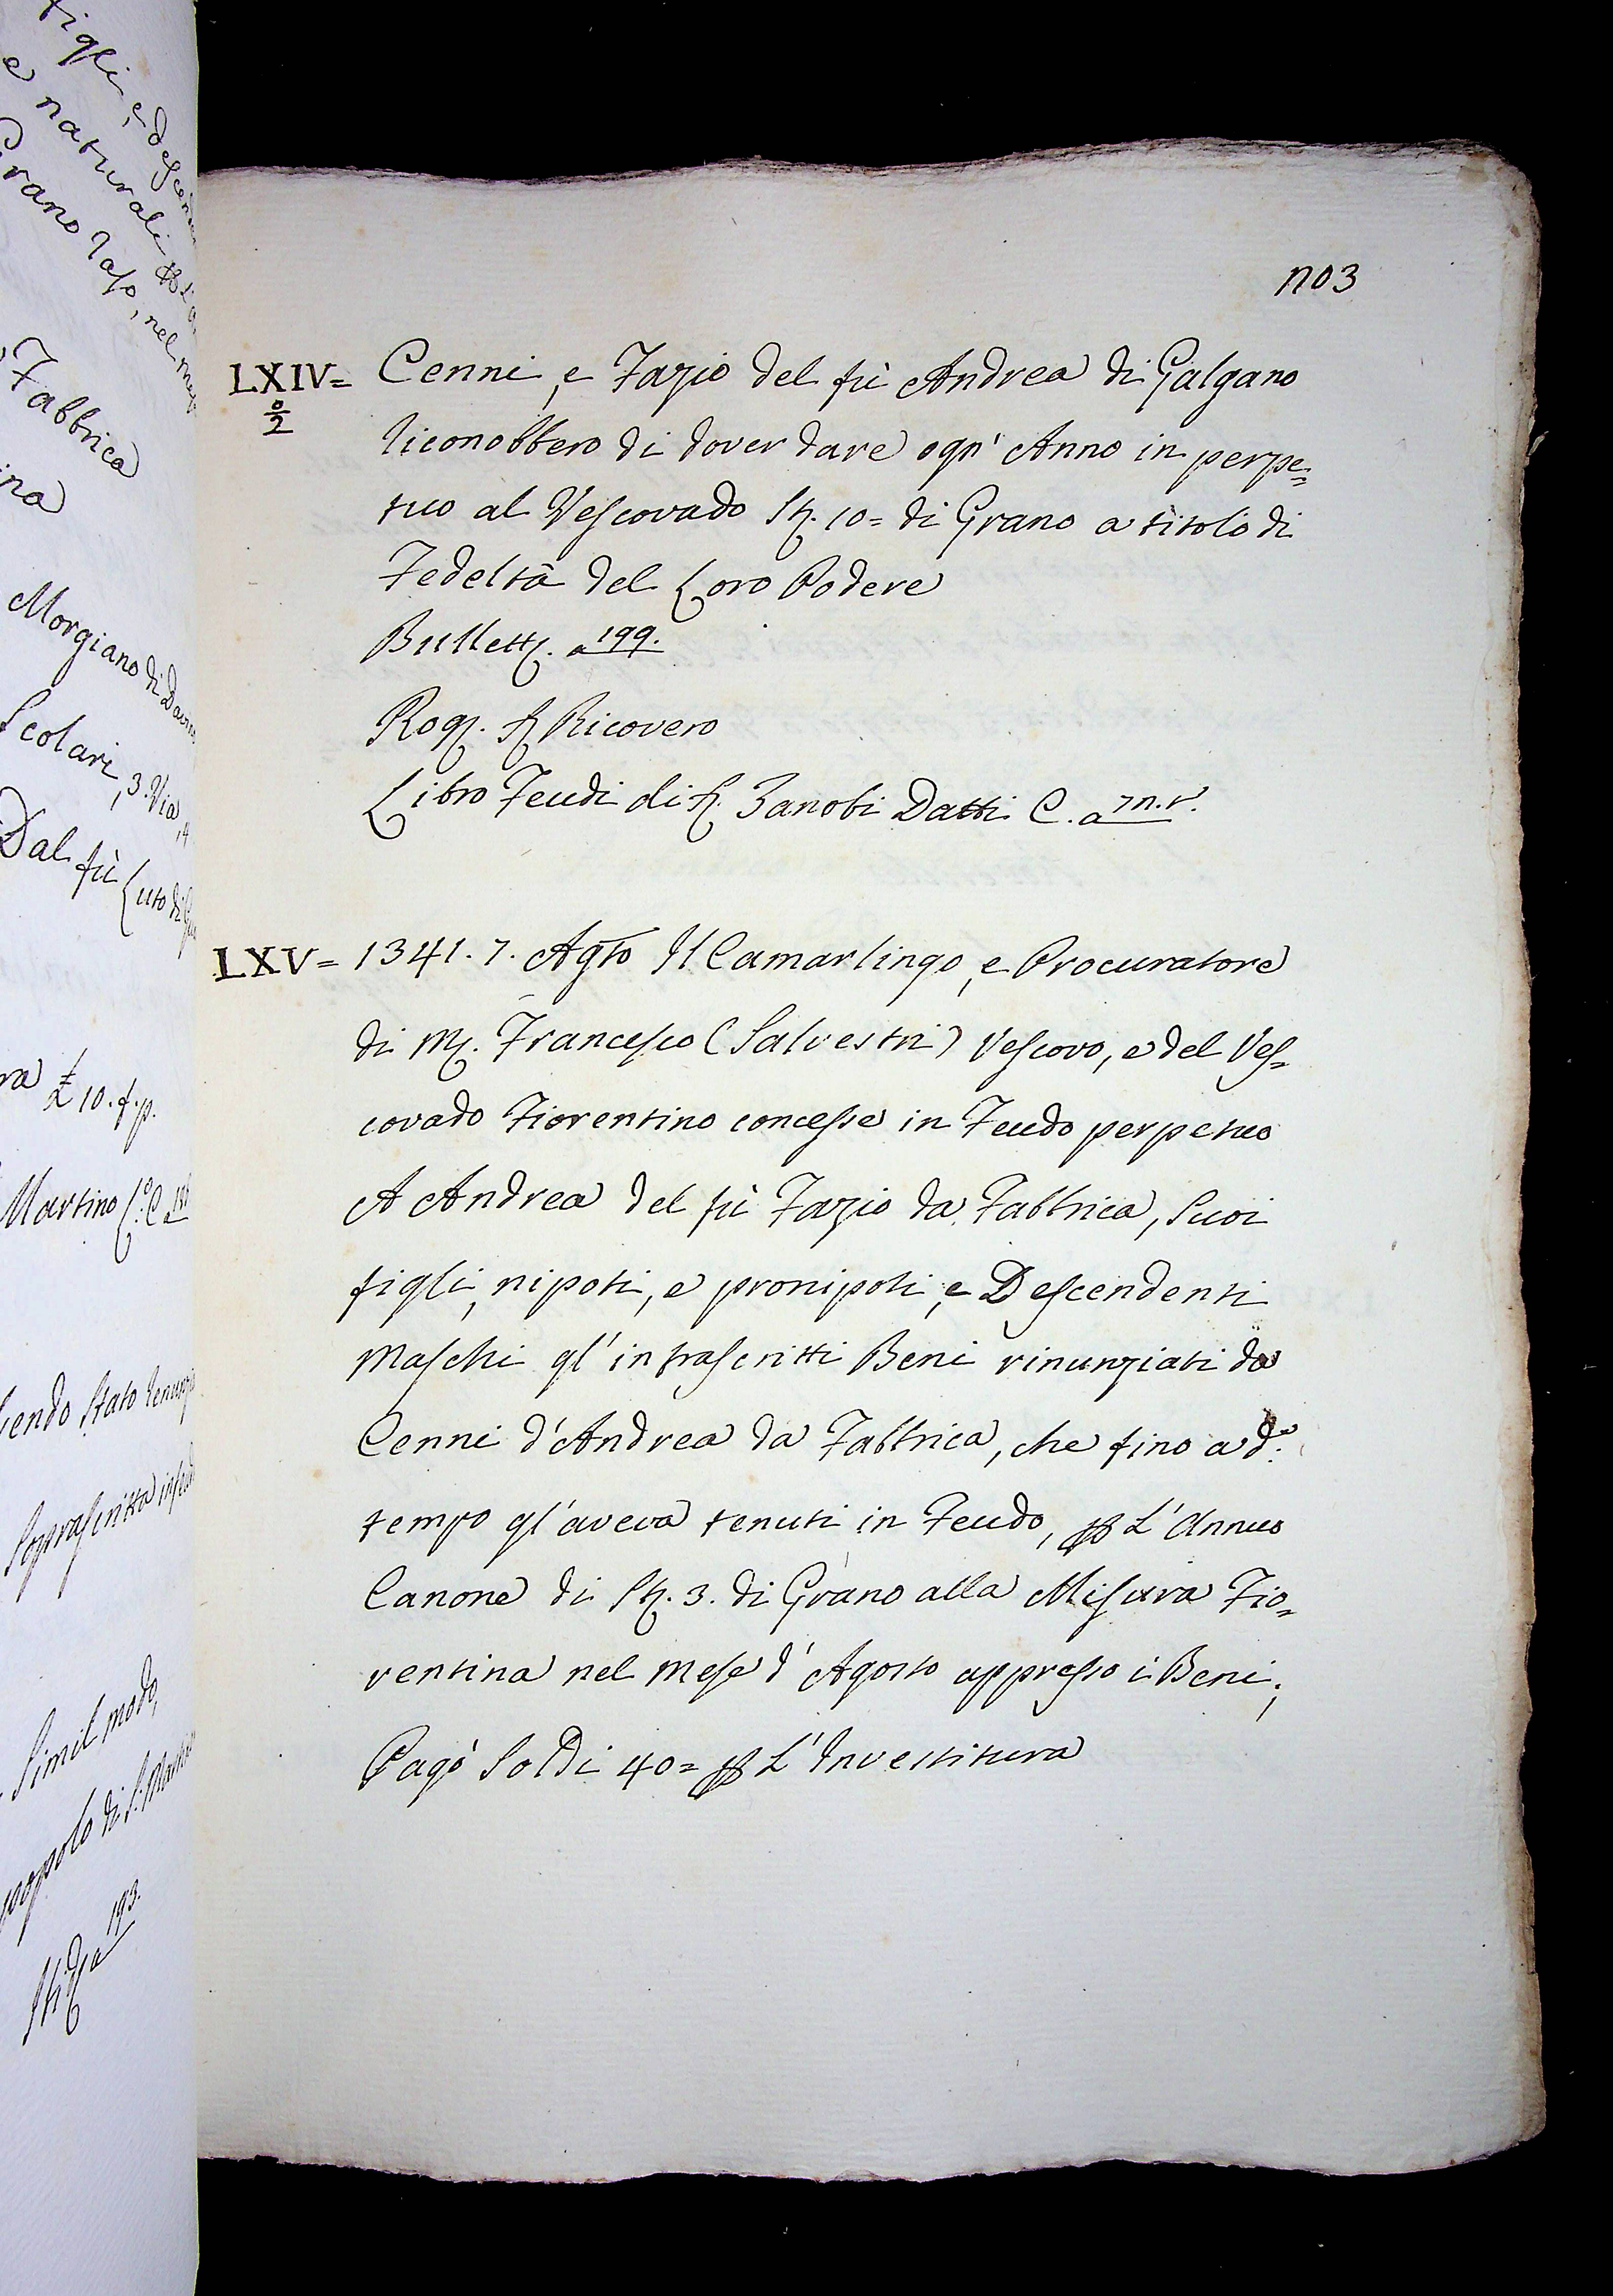 figli, e descen
e naturali
Grano raso, nel me
Fabbrica
ina
Morgiano di
Scolari, 3. Via, 4
Dal fù Luto di
ra £ 10. f. p.
Martino
sendo stato renunzi
Soprascritta
Simil modo,
popolo di S. Mart
193.
1103
LXIV= Cenni, e Fazio del fù Andrea di Galgano
2
riconobbero di dover dare ogn' Anno in perpe=
tuo al Vescovado St. 10= di Grano a titolo di
Fedeltà del Loro Podere
Bullett. a 199.
Rog. Sr. Ricovero
Libro Feudi di Sr. Zanobi Datti C. a 71. v.
LXV= 1341. 7. Agto Il Camarlingo, e Procuratore
di M. Francesco (Salvestri) Vescovo, e del Ves=
covado Fiorentino concesse in Feudo perpetuo
A Andrea del fù Fazio da Fabbrica, suoi
figli, nipoti, e pronipoti, e Descendenti
Maschi gl' infrascritti Beni rinunziati da
Cenni d' Andrea da Fabbrica, che fino a d.o
tempo gl' aveva tenuti in Feudo, p L' Annuo
Canone di St. 3. di Grano alla Misura Fio=
rentina nel Mese d' Agosto appresso i Beni;
Pagò Soldi 40= p L' Investitura